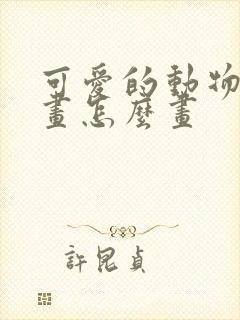 可愛的動物
畫怎麼畫
許昆貞